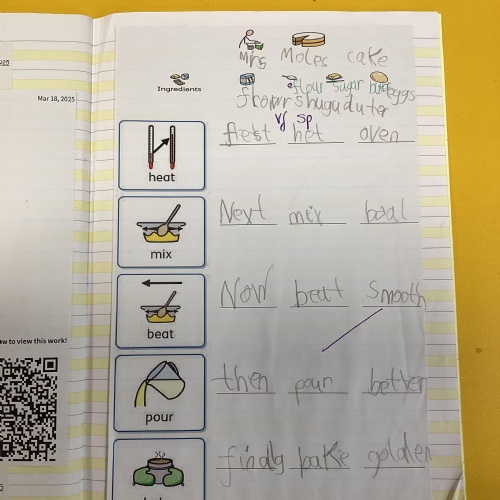 Mar 18, 2025
Mrs Moles cake
Ingredients
flour sugar butter eggs
flowr shugu duter
vf sp
fiest het oven
heat
Next mix boal
mix
Now beat smooth
beat
w to view this work!
then pour better
pour
finaly bake golden